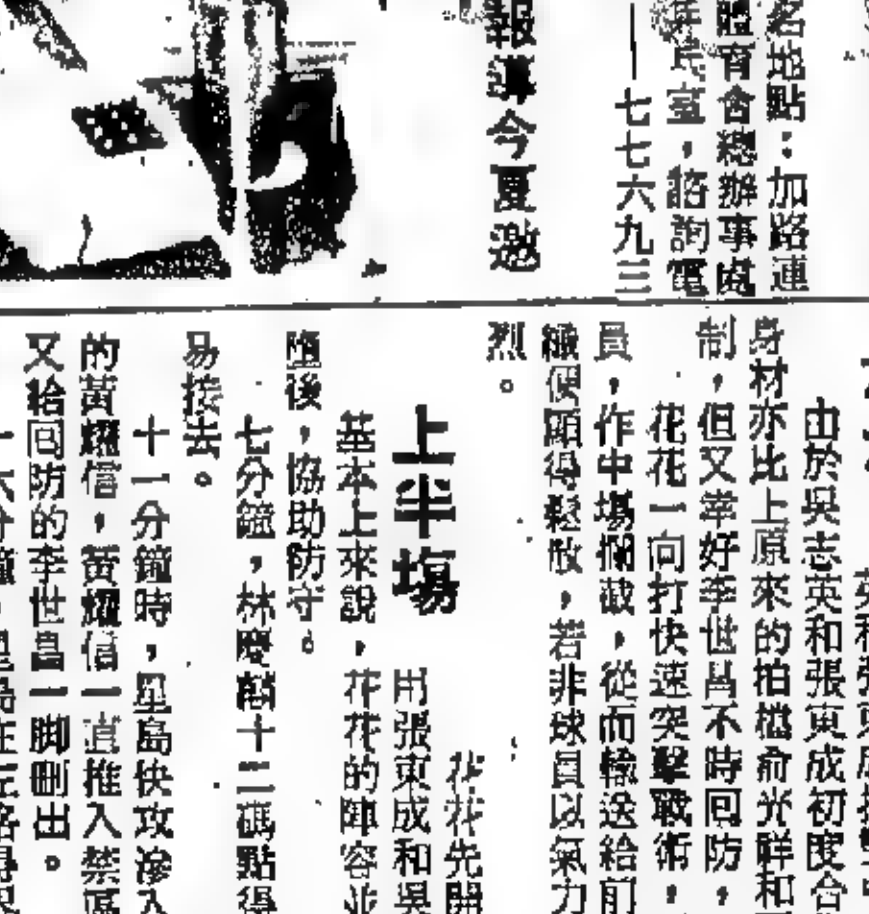 名地點：加路連
體育會總辦事處
民室，諮詢電
——七七六九三
報導今夏邀
由於吳志英和張東成初度合
身材亦比上原來的拍檔俞光祥和
制，但又幸好李世昌不時回防，
花花一向打快速突擊戰術，
員，作中場攔截，從而輸送給前
線便顯得鬆散，若非球員以氣力
烈。
上半場
花花先開
用張東成和吳
基本上來說，花花的陣容並
墮後，協助防守。
七分鐘，林慶麟十二碼點得
易接去。
十一分鐘時，星島快攻滲入
的黃耀信，黃耀信一直推入禁區
又給回防的李世昌一脚剷出。